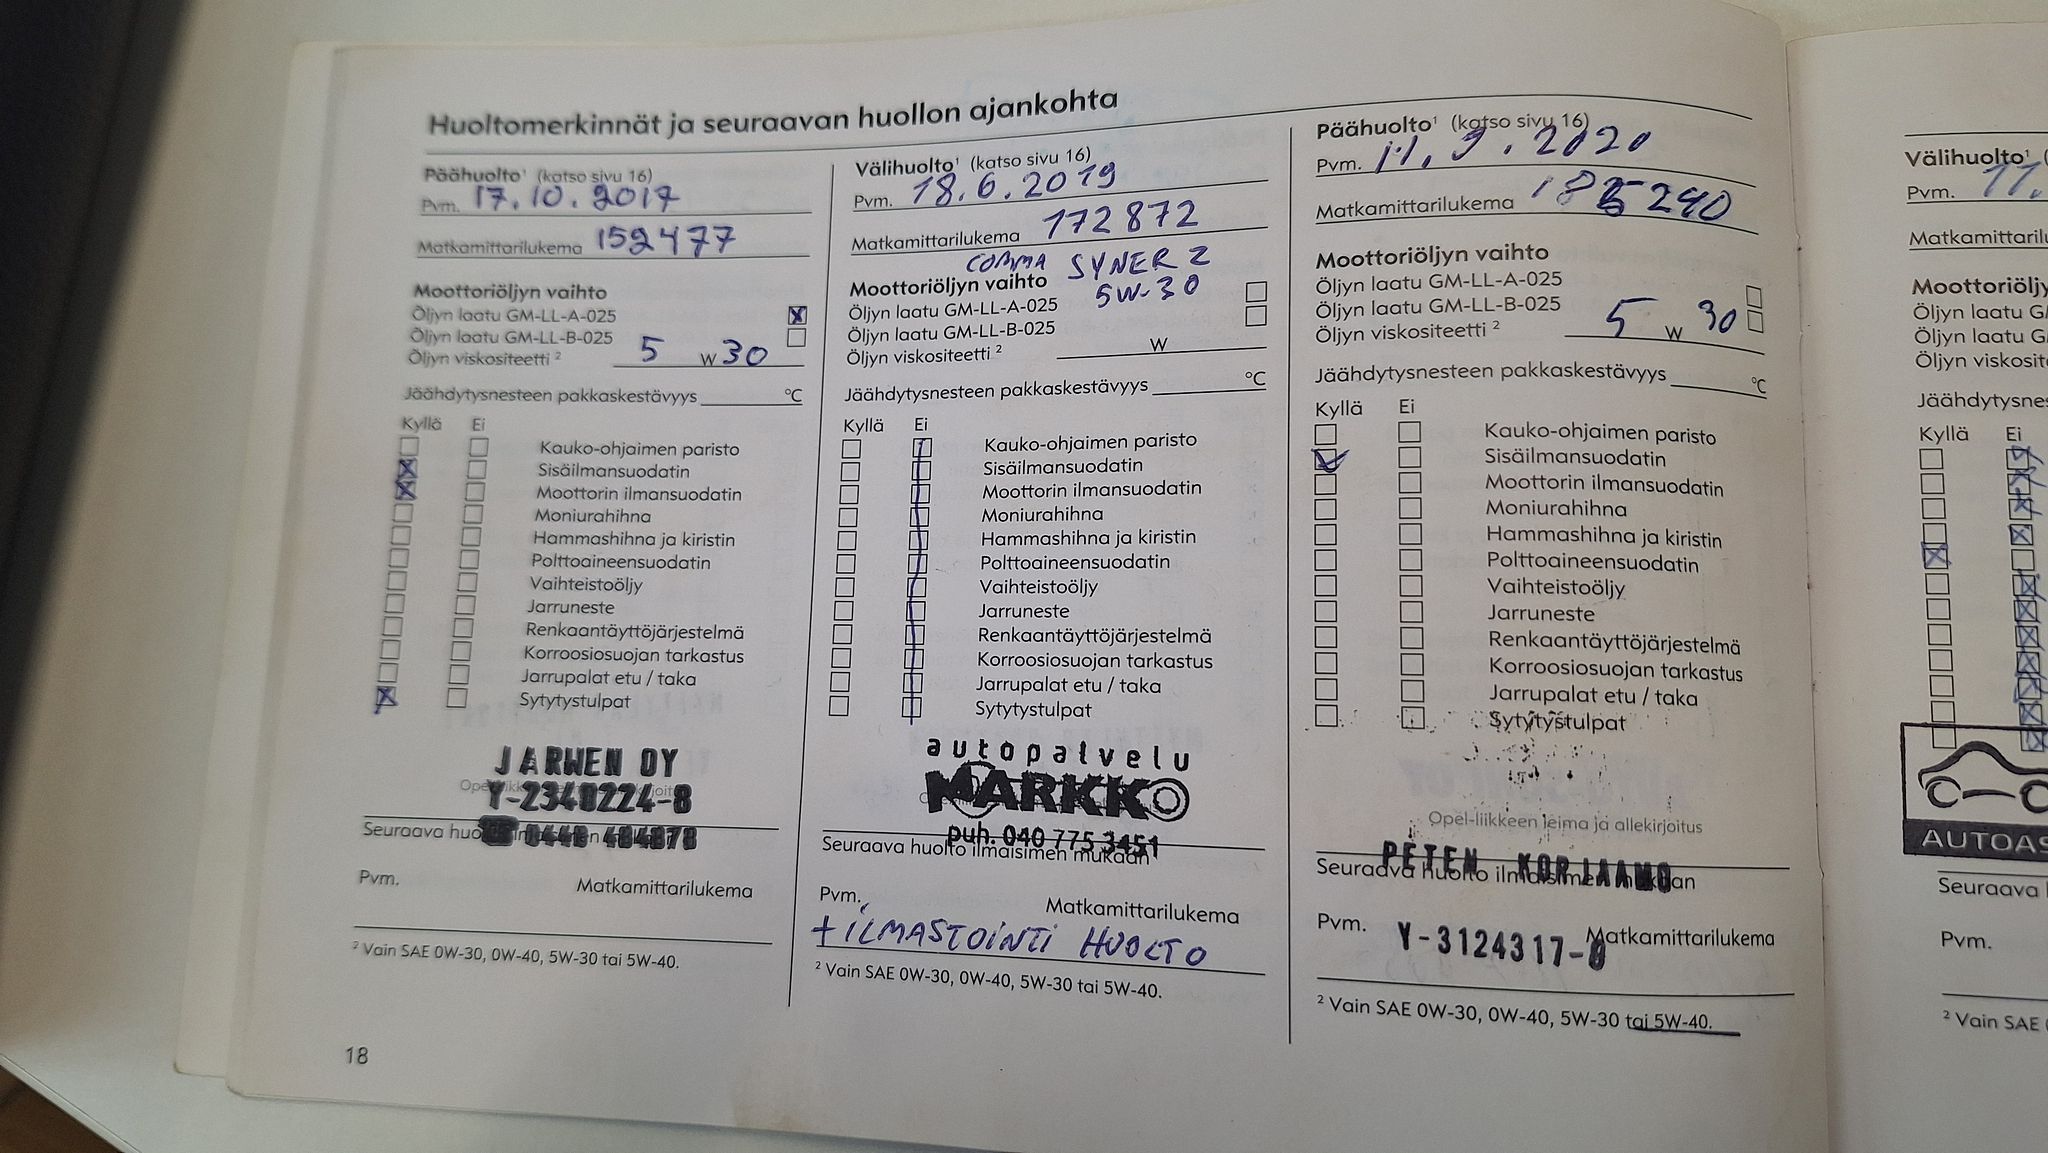 Huoltomerkinnät ja seuraavan huollon ajankohta
Päähuolto¹ (katso sivu 16)
Pvm. 17.10.2017
Matkamittarilukema 152477
Moottoriöljyn vaihto
Öljyn laatu GM-LL-A-025
Öljyn laatu GM-LL-B-025
Öljyn viskositeetti ² 5 W 30
Jäähdytysnesteen pakkaskestävyys °C
Kyllä Ei
Kauko-ohjaimen paristo
Sisäilmansuodatin
Moottorin ilmansuodatin
Moniurahihna
Hammashihna ja kiristin
Polttoaineensuodatin
Vaihteistoöljy
Jarruneste
Renkaantäyttöjärjestelmä
Korroosiosuojan tarkastus
Jarrupalat etu / taka
Sytytystulpat
JARWEN OY
Y-2340224-8
0440 484878
Seuraava
Pvm. Matkamittarilukema
² Vain SAE 0W-30, 0W-40, 5W-30 tai 5W-40.
18
Välihuolto¹ (katso sivu 16)
Pvm. 18.6.2019
Matkamittarilukema 172872
COMMA SYNER Z
Moottoriöljyn vaihto 5W-30
Öljyn laatu GM-LL-A-025
Öljyn laatu GM-LL-B-025
Öljyn viskositeetti ² W
Jäähdytysnesteen pakkaskestävyys °C
Kyllä Ei
Kauko-ohjaimen paristo
Sisäilmansuodatin
Moottorin ilmansuodatin
Moniurahihna
Hammashihna ja kiristin
Polttoaineensuodatin
Vaihteistoöljy
Jarruneste
Renkaantäyttöjärjestelmä
Korroosiosuojan tarkastus
Jarrupalat etu / taka
Sytytystulpat
autopalvelu
MARKKO
puh. 040 775 3451
Seuraava huolto ilmaisimen mukaan
Pvm. Matkamittarilukema
+ ILMASTOINTI HUOLTO
² Vain SAE 0W-30, 0W-40, 5W-30 tai 5W-40.
Päähuolto¹ (katso sivu 16)
Pvm. 11.9.2020
Matkamittarilukema 185290
Moottoriöljyn vaihto
Öljyn laatu GM-LL-A-025
Öljyn laatu GM-LL-B-025
Öljyn viskositeetti ² 5 W 30
Jäähdytysnesteen pakkaskestävyys °C
Kyllä Ei
Kauko-ohjaimen paristo
Sisäilmansuodatin
Moottorin ilmansuodatin
Moniurahihna
Hammashihna ja kiristin
Polttoaineensuodatin
Vaihteistoöljy
Jarruneste
Renkaantäyttöjärjestelmä
Korroosiosuojan tarkastus
Jarrupalat etu / taka
Sytytystulpat
Opel-liikkeen leima ja allekirjoitus
PETEN KORJAAMO
Seuraava huolto ilmaisimen mukaan
Pvm. Matkamittarilukema
Y-3124317-0
² Vain SAE 0W-30, 0W-40, 5W-30 tai 5W-40.
Välihuolto¹
Pvm. 11.
Matkamittaril
Moottoriöljy
Öljyn laatu G
Öljyn laatu G
Öljyn viskosit
Jäähdytysnes
Kyllä Ei
AUTOAS
Seuraava
Pvm.
² Vain SAE